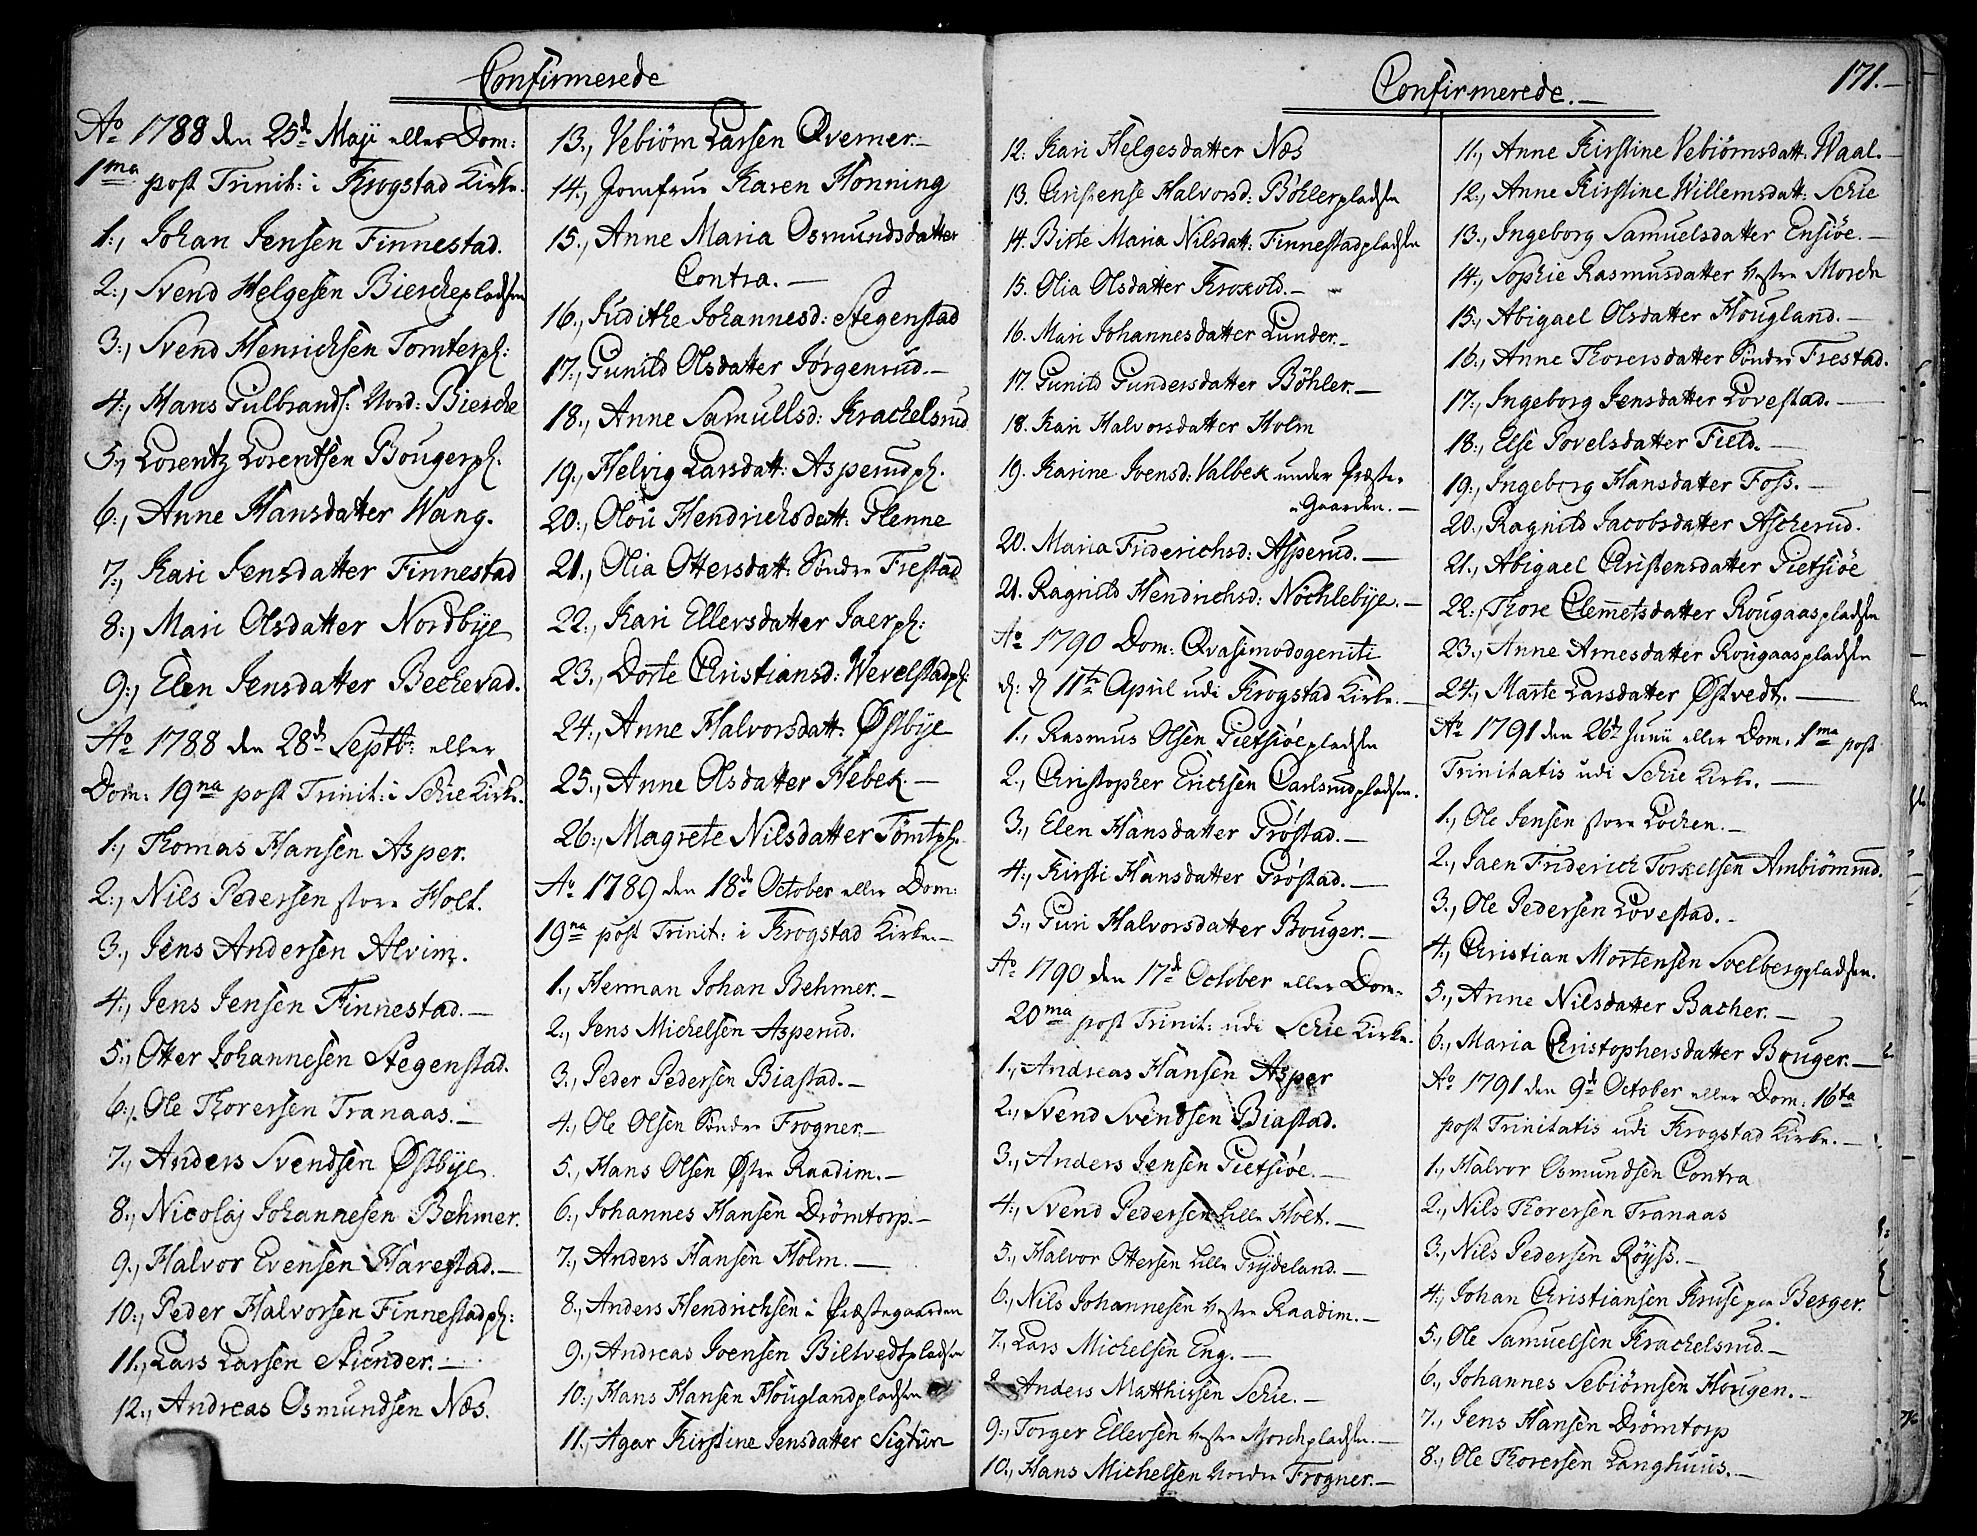 Confirmerede
Ao 1788 den 25de Maji eller Dom:
1ma post Trinit: i Krogstad Kirke.
1., Johan Jensen Finnestad.
2., Svend Helgesen Bierchepladsen
3., Svend Henrichsen Tomterpl:
4., Hans Gulbrands: Nord: Bierche
5., Lorentz Lorentsen Bougerpl.
6., Anne Hansdatter Wang.
7., Kari Jensdatter Finnestad
8., Mari Olsdatter Nordbye
9., Elen Jensdatter Bechevad.
Ao 1788 den 28de Septb: eller
Dom: 19na post Trinit: i Schie Kirke.
1., Thomas Hansen Asper.
2., Nils Pedersen store Holt.
3., Jens Andersen Alvim.
4., Jens Jensen Finnestad.—
5., Otter Johannesen Stegenstad.
6., Ole Thorersen Tranaas.—
7., Anders Svendsen Østbye
8., Nicolaj Johannesen Bøhmer.
9., Halvor Evensen Harestad.—
10., Peder Halvorsen Finnestadpl:
11., Lars Larsen Stiender.—
12., Andreas Osmundsen Næs.
13., Vebiørn Larsen Qverner.—
14., Jomfrue Karen Hønning
15., Anne Maria Osmundsdatter
Contra.—
16., Judithe Johannesd: Stegenstad
17., Gunild Olsdatter Jørgenrud.—
18., Anne Samuelsd: Krachelsrud
19., Helvig Larsdatt: Asperudpl.
20., Olou Hendrichsdatt: Glenne
21., Olia Ottersdatt: Søndre Frestad
22., Kari Ellersdatter Jaerpl:
23., Dorte Christiansd: Wevelstadpl:
24., Anne Halvorsdatt: Østbye
25., Anne Olsdatter Hebek.—
26., Magrete Nilsdatter Tomtpl.
Ao 1789 den 18de October eller Dom:
19na post Trinit: i Krogstad Kirke.—
1., Herman Johan Bøhmer.—
2., Jens Michelsen Asperud.
3., Peder Pedersen Biastad.—
4., Ole Olsen Søndre Frogner.—
5., Hans Olsen Østre Raadim.—
6., Johannes Hansen Drømtorp.—
7., Anders Hansen Holm.—
8., Anders Hendrichsen i Præstegaarden
9., Andreas Ivensen Biltvedtpladsen
10., Hans Hansen Houglandpladsen
11., Agar Kirstine Jensdatter Sigtun
Confirmerede.—
171.—
12. Kari Helgesdatter Næs
13. Christense Halvorsd: Bøhlerpladsen
14. Birte Maria Nilsdatt: Finnestadpladsen
15. Olia Olsdatter Krokvold.—
16. Mari Johannesdatter Lunder.—
17. Gunild Gundersdatter Bøhler.—
18. Kari Halvorsdatter Holm
19. Karine Ivensd: Valbek under Præste-
Gaarden.—
20. Maria Friderichsd: Asperud.—
21. Ragnild Hendrichsd: Nøchlebye.—
Ao 1790 Dom: Qvasimodogeniti
d: d 11te April udi Krogstad Kirke.—
1., Rasmus Olsen Gietsiøepladsen
2., Christopher Erichsen Carlsrudpladsen.
3., Elen Hansdatter Grøstad.—
4., Kirsti Hansdatter Grøstad.—
5., Guri Halvorsdatter Bouger.—
Ao 1790 den 17de October eller Dom:
20ma post Trinit: udi Schie Kirke.
1., Andreas Hansen Asper
2., Svend Svendsen Biastad.
3., Anders Jensen Gietsiøe.—
4., Svend Pedersen lille Holt.—
5., Halvor Ottersen lille Frydeland.—
6., Nils Johannesen Vestre Raadim.—
7., Lars Michelsen Eng.—
8. Anders Matthissen Schie.—
9., Torger Ellersen Vestre Morchpladsen.—
10., Hans Michelsen Nordre Frogner.—
11., Anne Kirstine Vebiørnsdatt: Waal.—
12., Anne Kirstine Willemsdatt: Schie
13., Ingeborg Samuelsdatter Ensiøe.—
14., Sophie Rasmusdatter Vestre Morch
15., Abigael Olsdatter Hougland.—
16., Anne Thorersdatter Søndre Frestad.
17., Ingeborg Jensdatter Lovestad.—
18., Else Povelsdatter Field.—
19., Ingeborg Hansdatter Foss.—
20., Ragnild Jacobsdatter Ascherud.
21., Abigael Christensdatter Gietsiøe
22., Thore Clemmetsdatter Rougaaspladsen
23., Anne Arnesdatter Rougaaspladsen
24., Marte Larsdatter Østvedt.—
Ao 1791 den 26de Junii eller Dom: 1ma post
Trinitatis udi Schie Kirke.—
1., Ole Jensen store Løchen.—
2., Jaen Friderich Torkelsen Ambiørnrud.
3., Ole Pedersen Lovestad.—
4., Christian Mortensen Solbergpladsen.
5., Anne Nilsdatter Bacher.—
6., Maria Christophersdatter Bouger.—
Ao 1791 den 9de October eller Dom: 16ta
post Trinitatis udi Krogstad Kirke.—
1., Halvor Osmundsen Contra
2., Nils Thorersen Tranaas
3., Nils Pedersen Røyss.—
4., Johan Christiansen Kruse paa Berger.
5., Ole Samuelsen Krachelsrud.—
6., Johannes Sebiørnsen Hougen.—
7., Jens Hansen Drømtorp
8., Ole Thorersen Langhuus.—